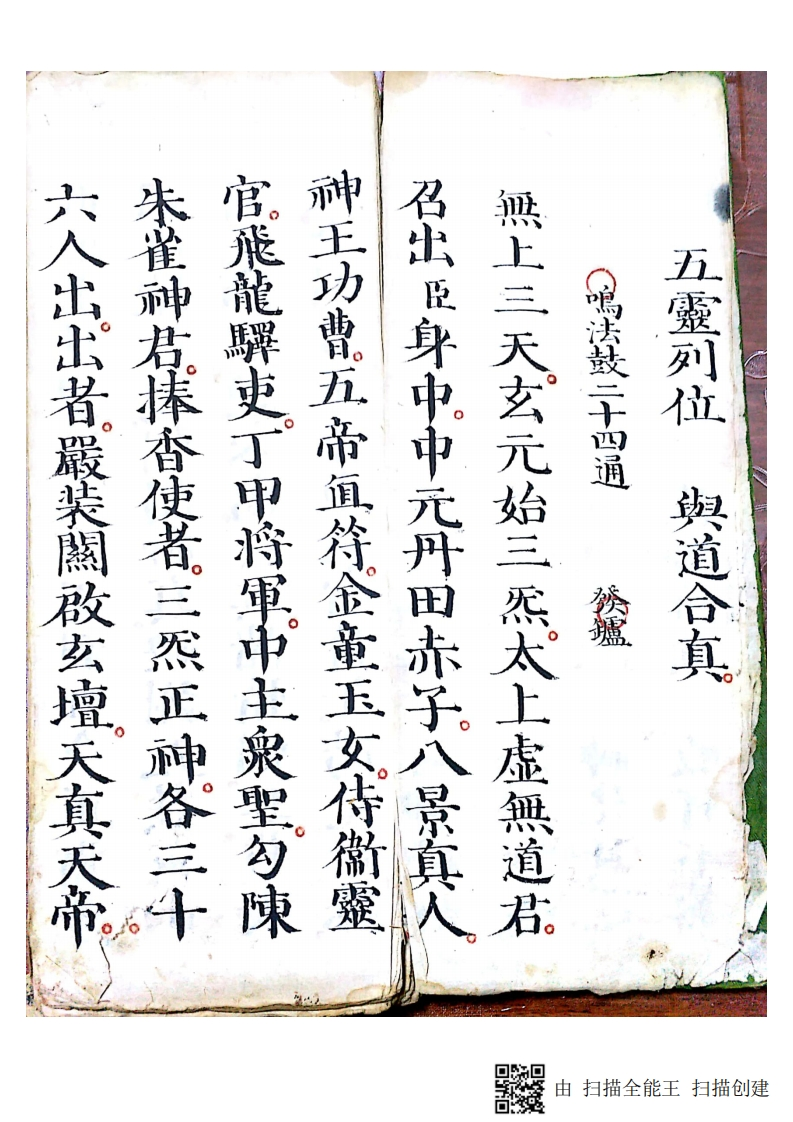 五靈列位　與道合真。
鳴法鼓二十四通　發爐
無上三天。玄元始三炁。太上虛無道君。
召出臣身中。中元丹田赤子。八景真人。
神王功曹。五帝直符。金童玉女。侍衛靈
官。飛龍驛吏。丁甲將軍。中主眾聖。勾陳
朱雀神君。捧香使者。三炁正神。各三十
六人出。出者。嚴裝關啟玄壇。天真天帝。
由 扫描全能王 扫描创建